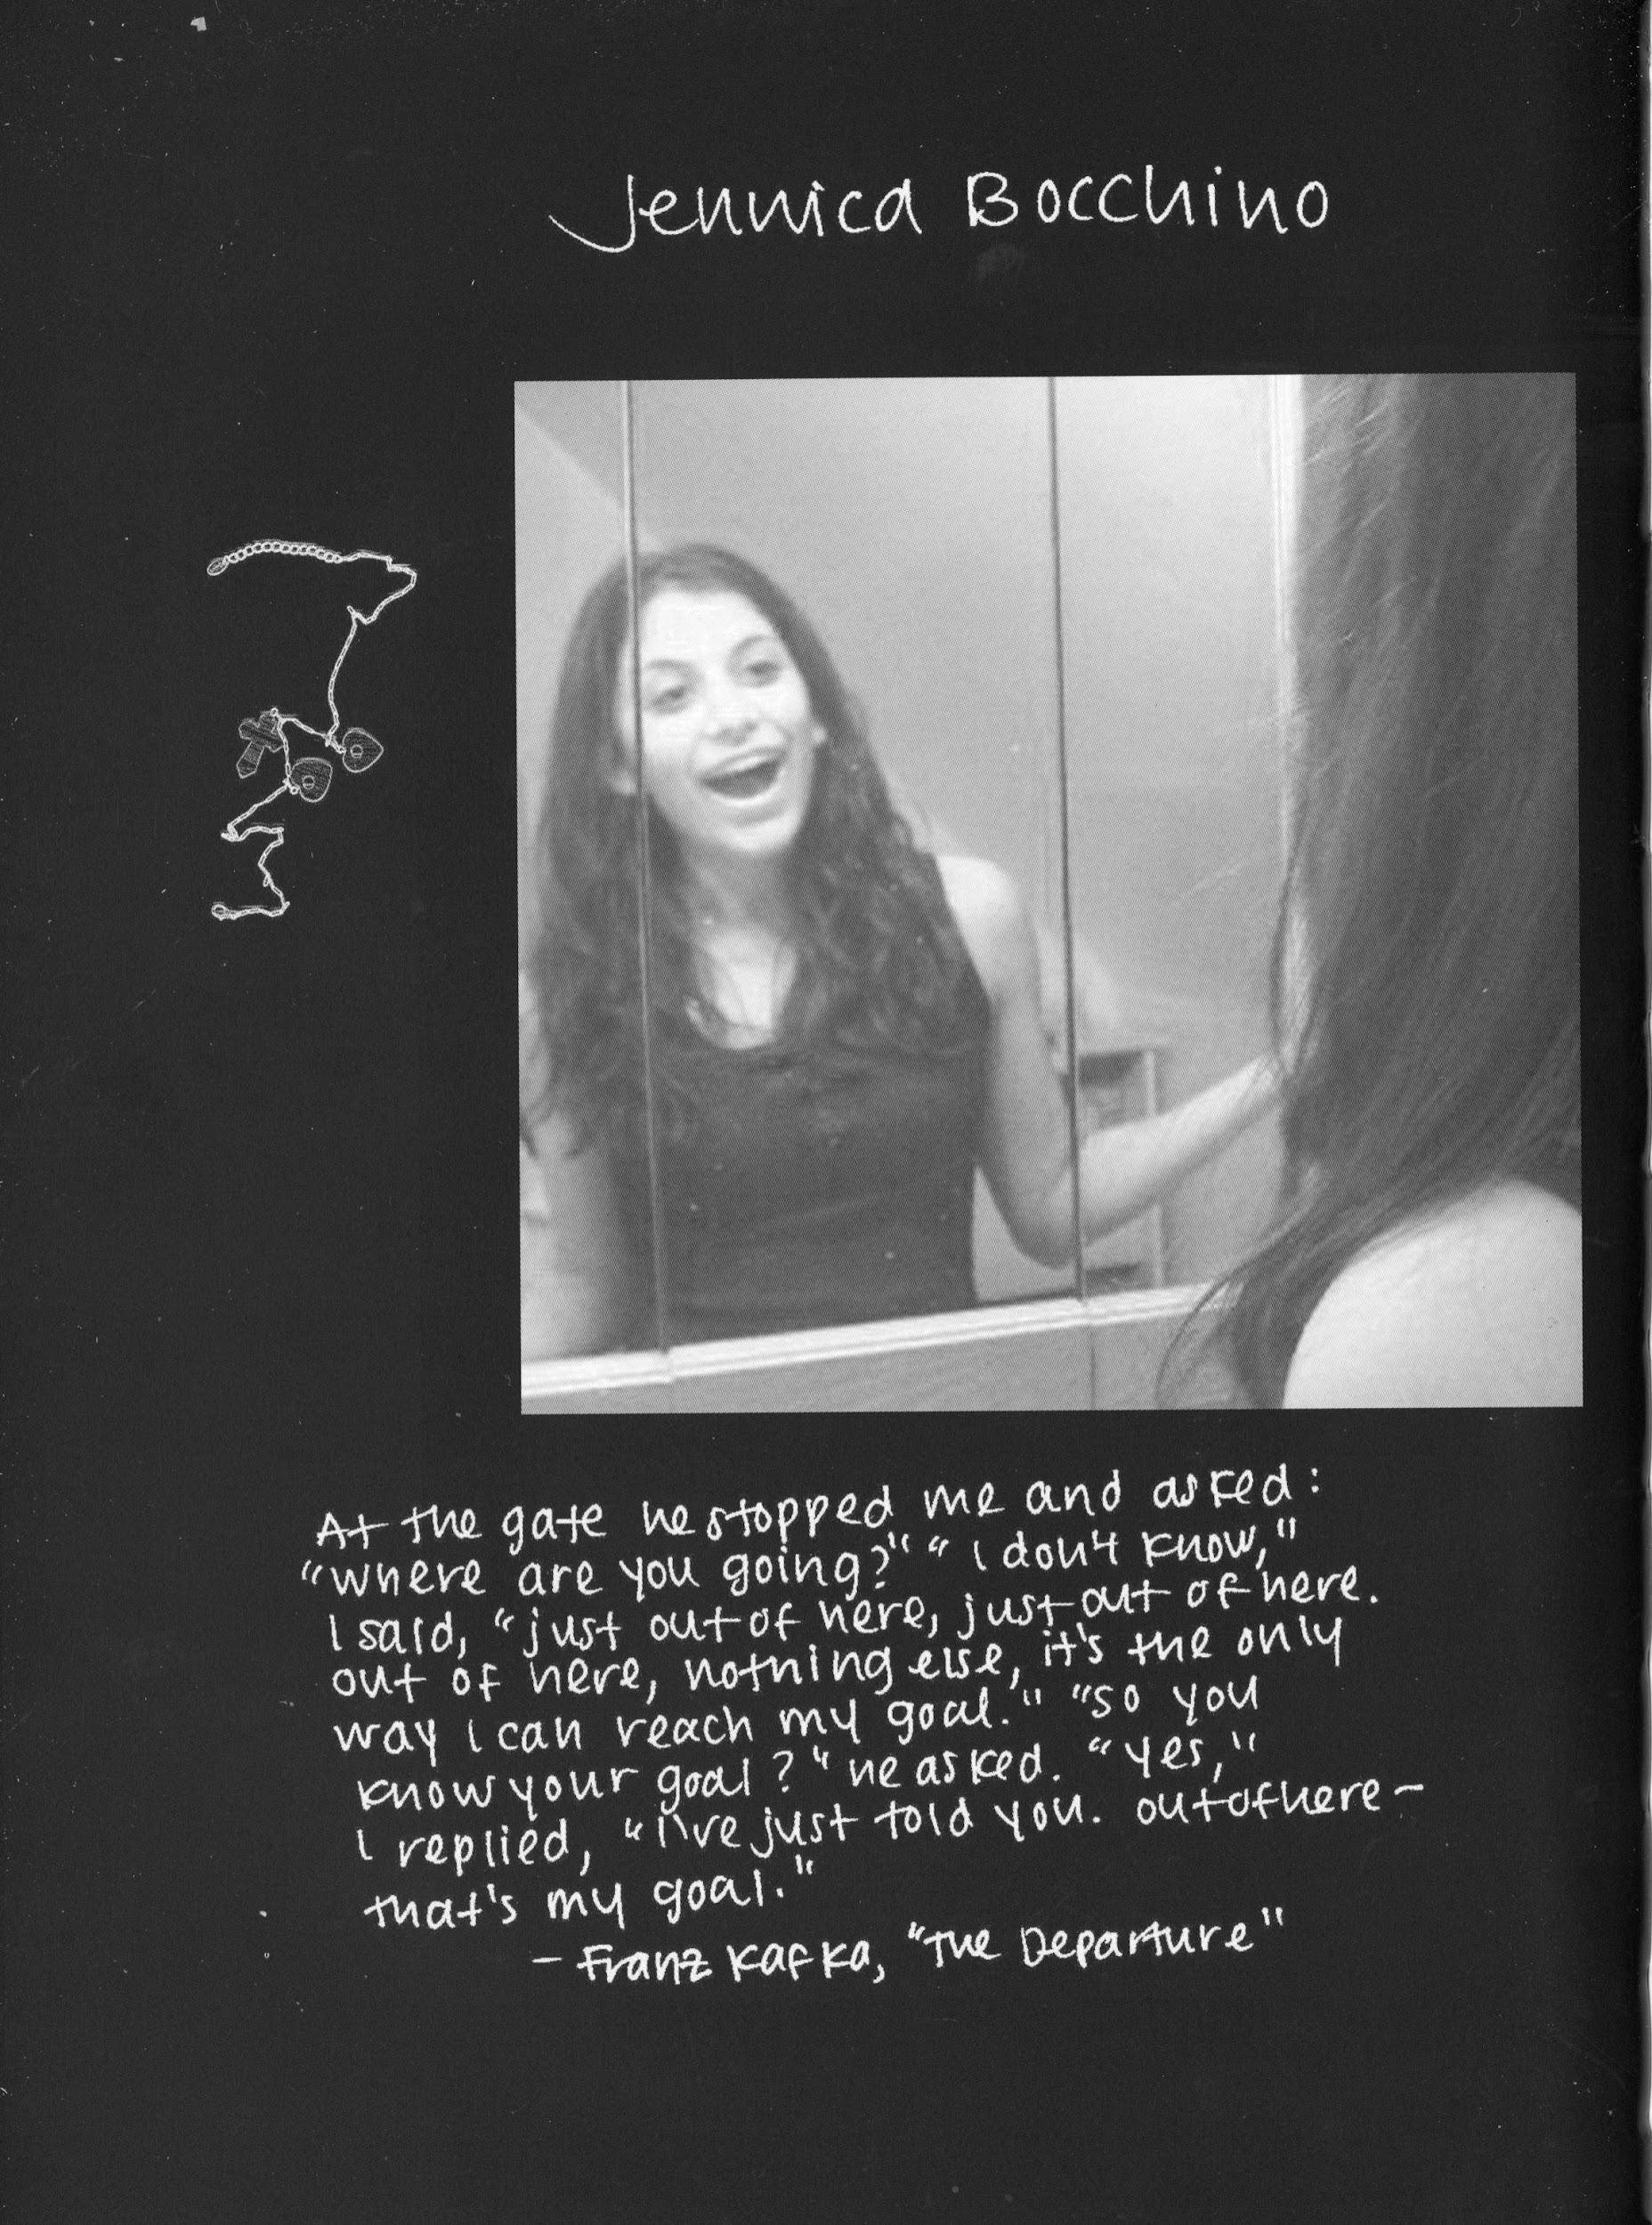 Jennica Bocchino
At the gate he stopped me and asked:
"where are you going?" "I don't know,"
I said, "just out of here, just out of here.
out of here, nothing else, it's the only
way I can reach my goal." "so you
know your goal?" he asked. "yes,"
I replied, "I've just told you. outofhere-
that's my goal."
- Franz Kafka, "The Departure"